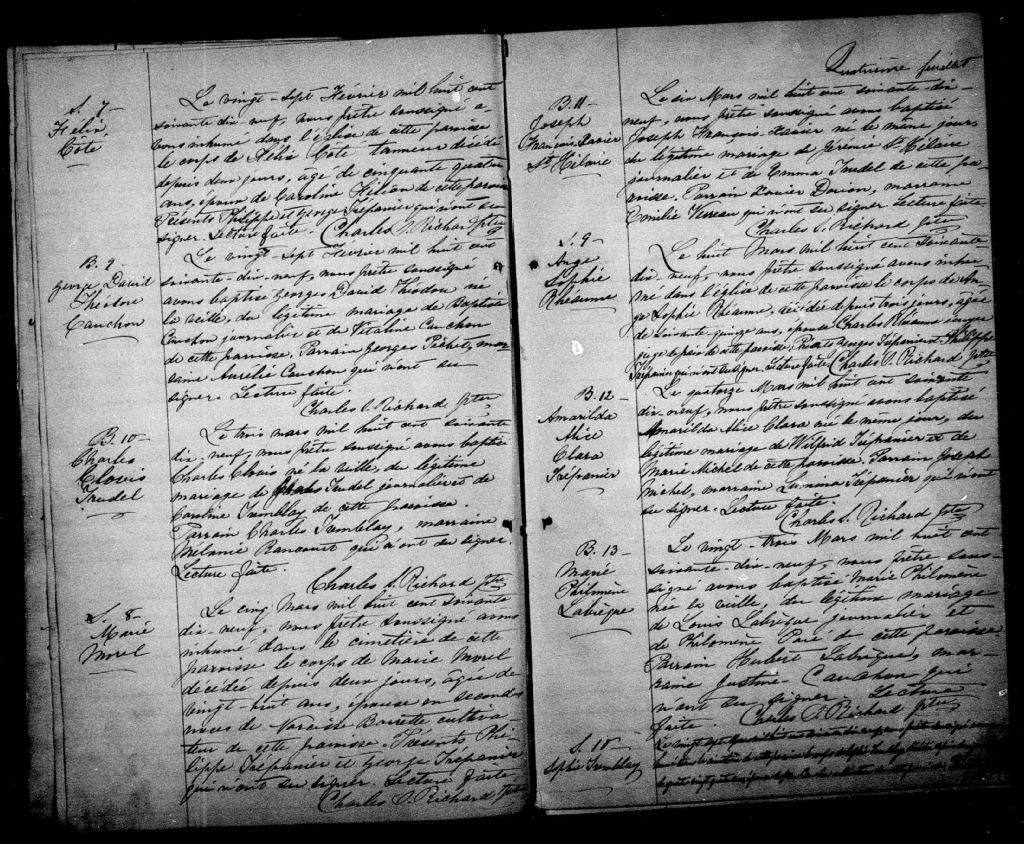 S. 7
Félix
Côté
Le vingt-sept Février mil huit cent
soixante dix-neuf, nous prêtre soussigné a
vons inhumé dans l'église de cette paroisse
le corps de Félix Côté tanneur décédé
depuis deux jours, agé de cinquante quatre
ans, époux de Caroline de cette paroisse
Présents Philippe et George Trépanier qui n'ont su
signer. Lecture faite. Charles S. Richard ptre
B. 9
George David
Théodore
Cauchon
Le vingt-sept Fevrier mil huit cent
soixante-dix-neuf, nous prêtre soussigné
avons baptisé Georges David Théodore né
la veille, du légitime mariage de Baptiste
Cauchon journalier et de Vitaline Cauchon
de cette paroisse. Parrain Georges Pichet, mar
raine Aurélie Cauchon qui n'ont su
signer. Lecture faite.
Charles S. Richard ptre
B. 10
Charles
Clovis
Trudel
Le trois mars mil huit cent soixante
dix-neuf, nous prêtre soussigné avons baptisé
Charles Clovis né la veille, du légitime
mariage de Charles Trudel journalier et de
Caroline Tremblay de cette paroisse.
Parrain Charles Tremblay, marraine
Mélanie Rancourt qui n'ont su signer.
Lecture faite.
Charles S. Richard ptre
S. 8
Marie
Morel
Le cinq Mars mil huit cent soixante
dix-neuf, nous prêtre soussigné avons
inhumé dans le cimetière de cette
paroisse le corps de Marie Morel
décédée depuis deux jours, agée de
vingt-huit ans, épouse en secondes
noces de Narcisse Barrette cultiva
teur de cette paroisse. Présents Phi
lippe Trépanier et George Trépanier
qui n'ont su signer. Lecture faite.
Charles S. Richard ptre
Quatrième feuillet
B. 11
Joseph
François Xavier
St Hilaire
Le six Mars mil huit cent soixante-dix-
neuf, nous prêtre soussigné avons baptisé
Joseph François Xavier né le même jour,
du légitime mariage de Jérémie St Hilaire
journalier et de Emma Trudel de cette pa
roisse, Parrain Xavier Dorion, marraine
Emilie Verreau qui n'ont su signer Lecture faite
Charles S. Richard ptre
S. 9
Ange
Sophie
Rhéaume
Le huit Mars mil huit cent soixante
dix neuf, nous prêtre soussigné avons inhu
mé dans l'église de cette paroisse le corps de An
ge Sophie Rhéaume, décédée depuis trois jours, agée
de soixante quinze ans, épouse Charles Rhéaume
de cette paroisse. Présents Georges Trépanier et Philippe
Trépanier qui n'ont su signer. Lecture faite. Charles S. Richard ptre
B. 12
Amarilda
Alice
Clara
Trépanier
Le quatorze Mars mil huit cent soixante
dix neuf, nous prêtre soussigné avons baptisé
Amarilda Alice Clara née le même jour, du
légitime mariage de Wilfrid Trépanier et de
Marie Michel de cette paroisse. Parrain Joseph
Michel, marraine Trépanier qui n'ont
su signer. Lecture faite
Charles S. Richard ptre
B. 13
Marie
Philomène
Labrèque
Le vingt-trois Mars mil huit cent
soixante-dix-neuf, nous prêtre sous-
signé avons baptisé Marie Philomène
née la veille, du légitime mariage
de Louis Labrèque journalier et
de Philomène Paré de cette paroisse.
Parrain Hubert Labrèque, mar-
raine Justine Cauchon qui
n'ont su signer. Lecture
faite. Charles S. Richard ptre
S. 10
Sophie Tremblay